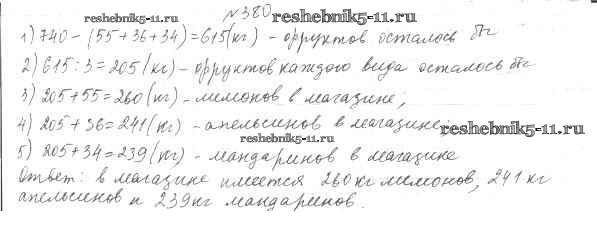 №380
reshebnik5-11.ru
reshebnik5-11.ru
1) 740 - (55 + 36 + 34) = 615 (кг) - фруктов осталось бы
2) 615 : 3 = 205 (кг) - фруктов каждого вида осталось бы
3) 205 + 55 = 260 (кг) - лимонов в магазине;
4) 205 + 36 = 241 (кг) - апельсинов в магазине;
reshebnik5-11.ru
reshebnik5-11.ru
5) 205 + 34 = 239 (кг) - мандаринов в магазине
Ответ: в магазине имеется 260 кг лимонов, 241 кг
апельсинов и 239 кг мандаринов.
reshebnik5-11.ru